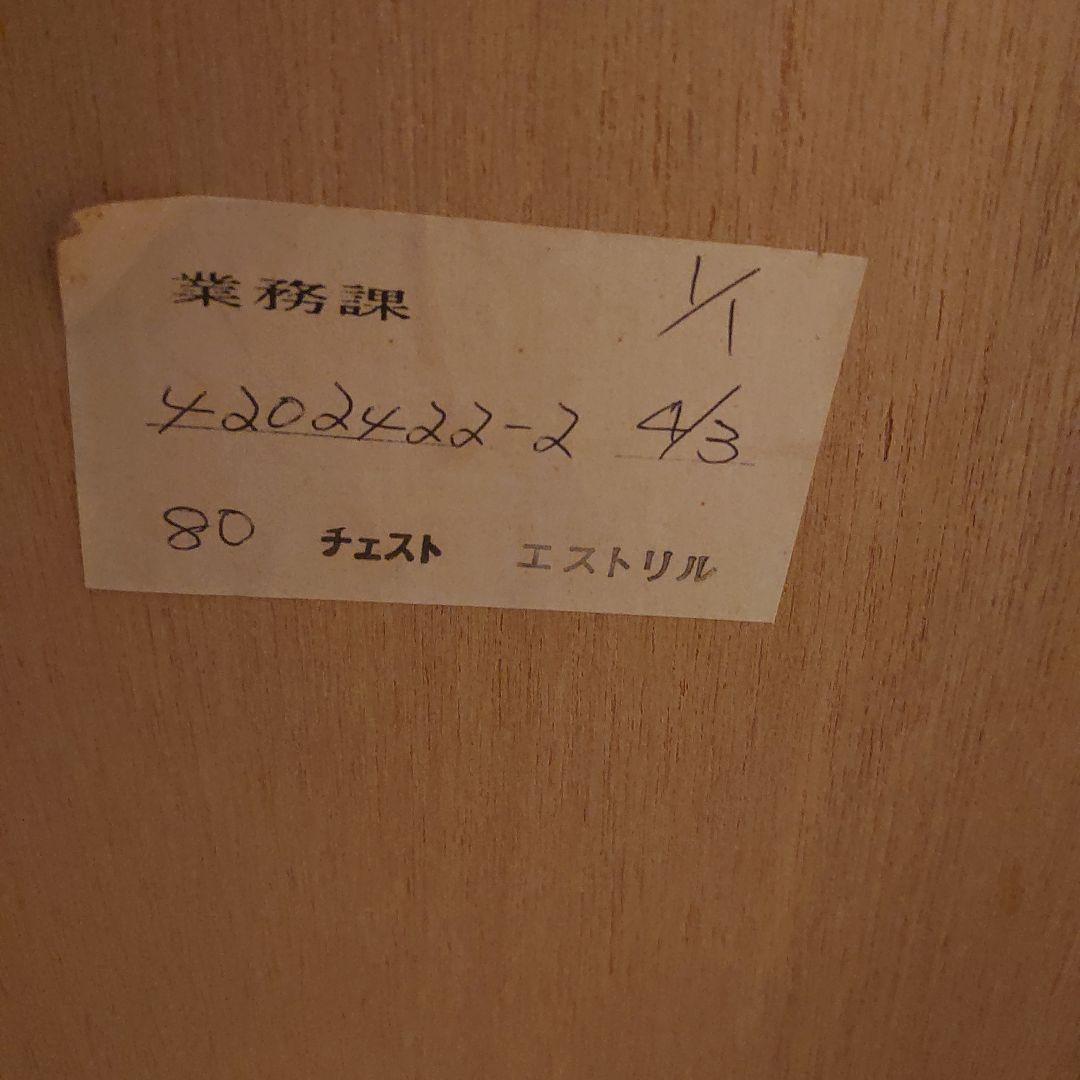 業務課 1/1
4202422-2 4/3
80 チェスト エストリル